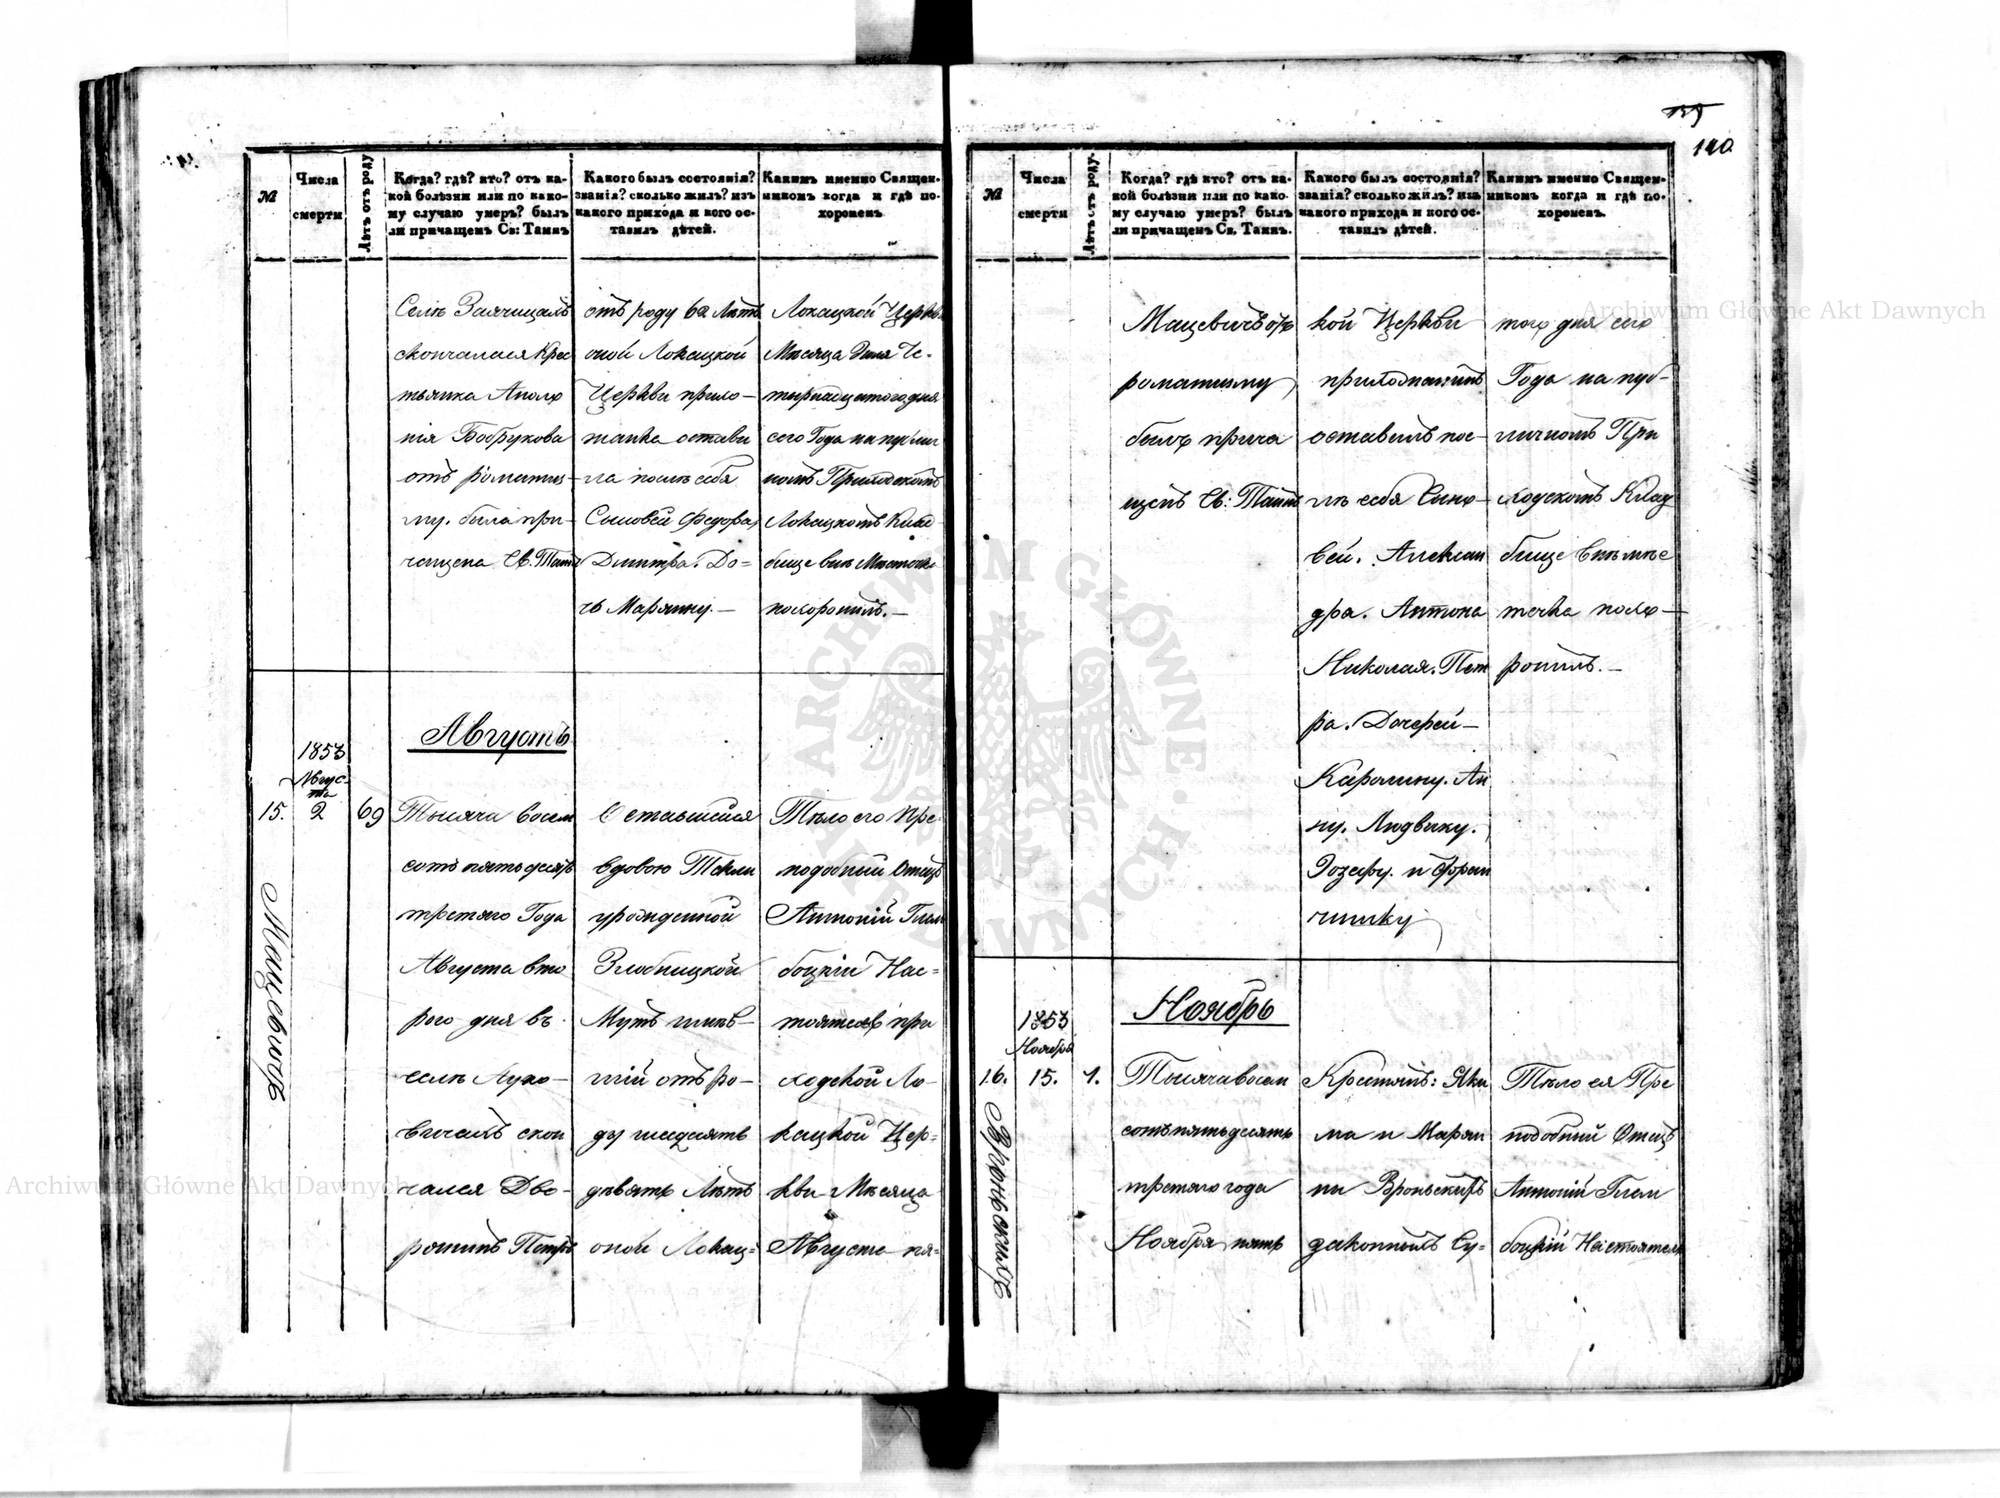 139
140
№
Числа смерти
Лѣтъ отъ роду
Когда? гдѣ? кто? отъ ка-
кой болѣзни или по како-
му случаю умеръ? былъ
ли причащенъ Св: Таинъ
Какого былъ состоянія?
званія? сколько жилъ? изъ
какого прихода и кого ос-
тавилъ дѣтей.
Какимъ именно Священ-
никомъ когда и гдѣ по-
хороненъ
Селѣ Заячицахъ
скончалася Крес
тьянка Аполо
нія Бобрукова
отъ роматиз-
му. была при-
чащена Св. Таинъ
отъ роду 62 Лѣтъ
оной Локацкой
Церкви прихо-
жанка остави
ла послѣ себя
Сыновей Федора,
Дмитра. До=
чь Марянну.—
Локацкой Церкви
Мѣсяца Юля Че-
тырнадцатого дня
сего Года на публич
номъ Приходскомъ
Локацкомъ Клад-
бище внѣ Мѣсточка
похоронилъ.—
Августъ
1853
Авгус-
та
15.
2
69
Мацевичъ
Тысяча восем
сотъ пятьдесятъ
третяго Года
Августа вто
рого дня въ
селѣ Хухо-
вичахъ скон
чался Дво-
ронинъ Петръ
Оставшійся
вдовою Текли
урожденной
Злобницкой
Мужъ жив-
шій отъ ро-
ду шедсятъ
девять Лѣтъ
оной Локац=
Тѣло его Пре
подобный Отецъ
Антоній Глем
боцкій Нас=
тоятель при
ходской Ло-
кацкой Цер=
кви Мѣсяца
Августе пя=
№
Числа смерти
Лѣтъ отъ роду.
Когда? гдѣ? кто? отъ ка-
кой болѣзни или по како-
му случаю умеръ? былъ
ли причащенъ Св. Таинъ.
Какого былъ состоянія?
званія? сколько жилъ? изъ
какого прихода и кого ос-
тавилъ дѣтей.
Какимъ именно Священ-
никомъ когда и гдѣ по-
хороненъ.
Мацевичъ отъ
роматизму
былъ прича
щенъ Св: Таинъ
кой Церкви
прихожанинъ
оставилъ пос-
лѣ себя Сыно-
вей. Алексан
дра. Антона
Николая. Пет
ра. Дочерей—
Каролину. Ан
ну. Людвику.
Юзефу. и Фран
чишку
того дня сего
Года на пуб-
личномъ При
ходскомъ Клад
бище внѣ мѣс
точка похо-
ронилъ.—
Ноябрь
1853
Ноября
16.
15.
1.
Вроньскихъ
Тысяча восем
сотъ пятьдесятъ
третяго года
Ноября пятн
Крестянъ: Яки
ма и Марян
ны Вроньскихъ
законныхъ Су=
Тѣло ея Пре
подобный Отецъ
Антоній Глем
боцкій Настоятель
Archiwum Główne Akt Dawnych
Archiwum Główne Akt Dawnych
ARCHIWUM GŁÓWNE AKT DAWNYCH